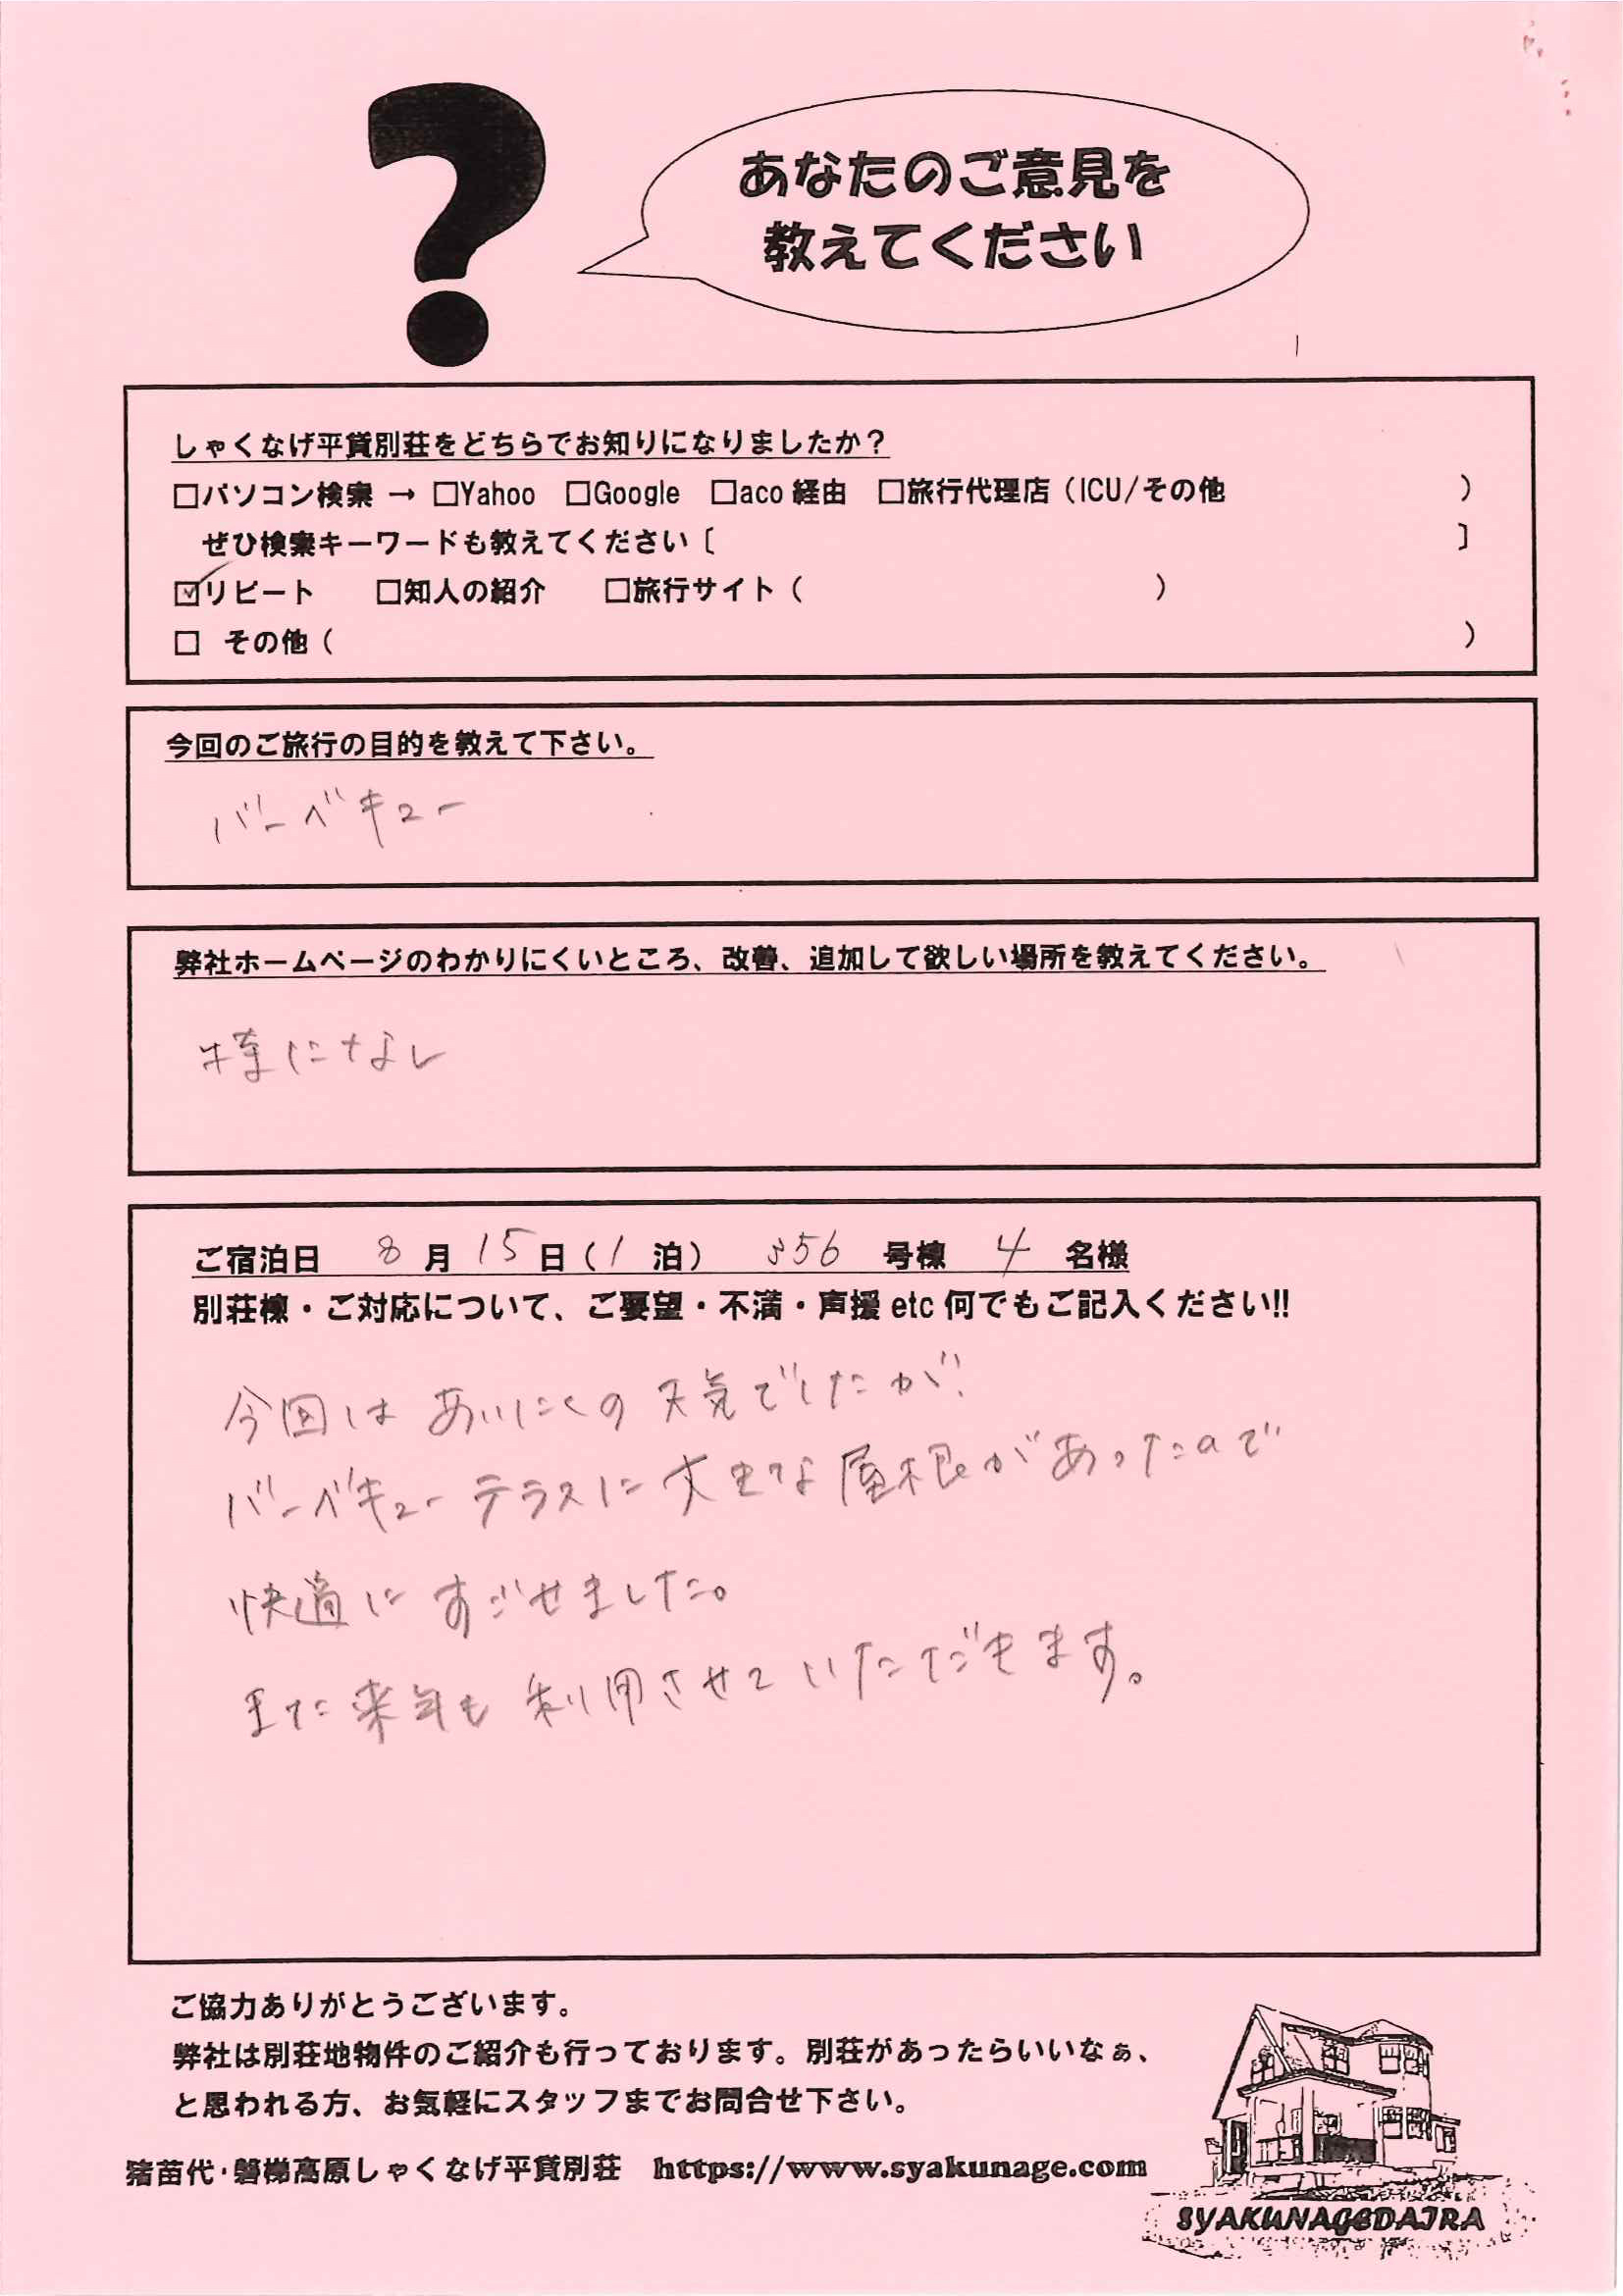 あなたのご意見を
教えてください
しゃくなげ平貸別荘をどちらでお知りになりましたか？
□パソコン検索 → □Yahoo □Google □aco 経由 □旅行代理店（ICU/その他 ）
ぜひ検索キーワードも教えてください〔 〕
☑リピート □知人の紹介 □旅行サイト（ ）
□ その他（ ）
今回のご旅行の目的を教えて下さい。
バーベキュー
弊社ホームページのわかりにくいところ、改善、追加して欲しい場所を教えてください。
特になし
ご宿泊日 8 月 15 日（1 泊） 356 号棟 4 名様
別荘棟・ご対応について、ご要望・不満・声援 etc 何でもご記入ください!!
今回は あいにくの 天気でしたが、
バーベキューテラスに 大きな 屋根があったので
快適に すごせました。
また 来年も 利用させていただきます。
ご協力ありがとうございます。
弊社は別荘地物件のご紹介も行っております。別荘があったらいいなぁ、
と思われる方、お気軽にスタッフまでお問合せ下さい。
猪苗代･磐梯高原しゃくなげ平貸別荘 https://www.syakunage.com
SYAKUNAGEDAIRA